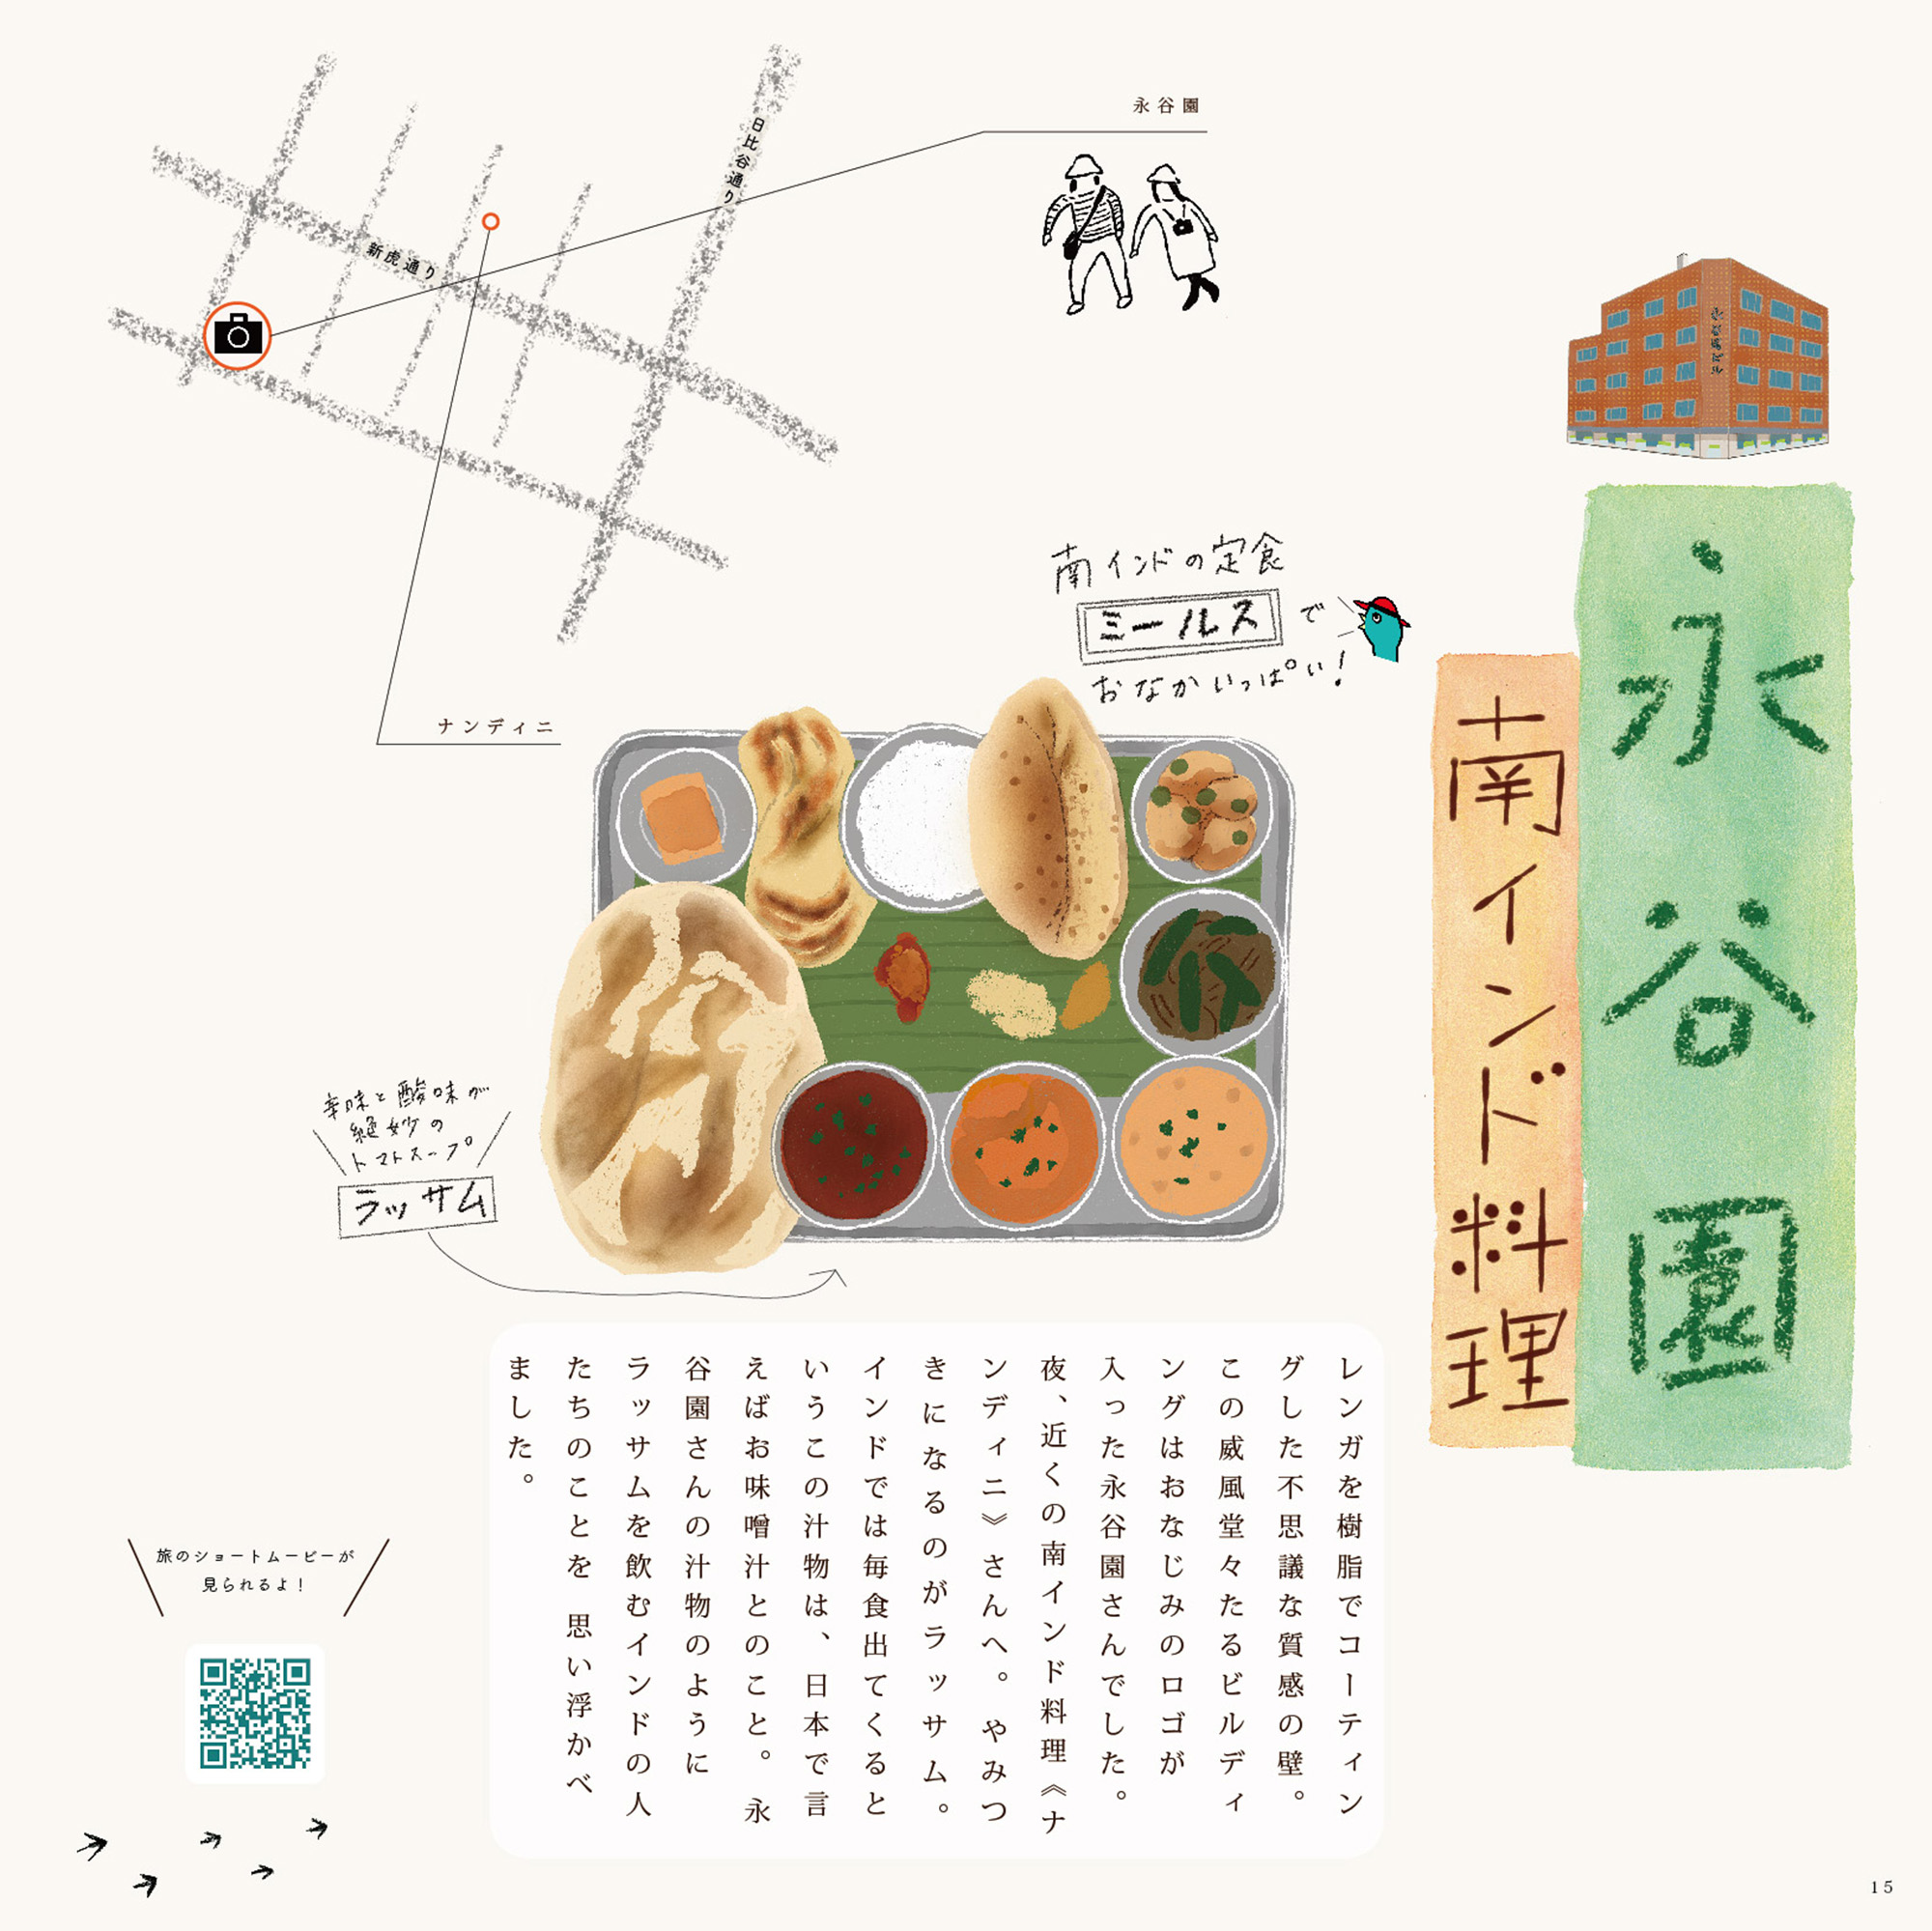 永谷園
南インド料理
永谷園
日比谷通り
新虎通り
ナンディニ
南インドの定食
ミールス
で
おなかいっぱい!
辛味と酸味が
絶妙の
トマトスープ
ラッサム
レンガを樹脂でコーティン
グした不思議な質感の壁。
この威風堂々たるビルディ
ングはおなじみのロゴが
入った永谷園さんでした。
夜、近くの南インド料理《ナ
ンディニ》さんへ。やみつ
きになるのがラッサム。
インドでは毎食出てくると
いうこの汁物は、日本で言
えばお味噌汁とのこと。永
谷園さんの汁物のように
ラッサムを飲むインドの人
たちのことを 思い浮かべ
ました。
旅のショートムービーが
見られるよ!
15